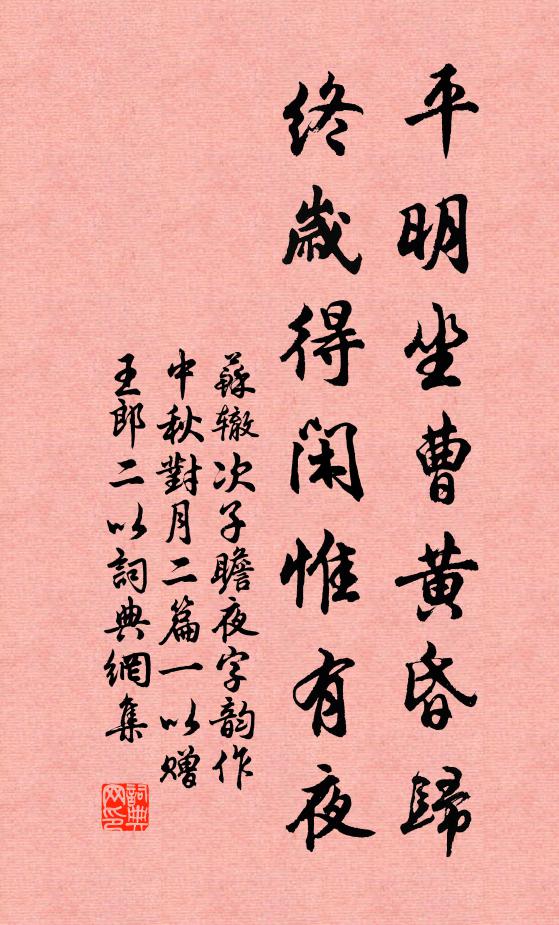 平明坐曹黃昏歸
終歲得閑惟有夜
蘇辙次子瞻夜字韵作
中秋對月二篇一以赠
王郎二以詞典網集
詞典
网印